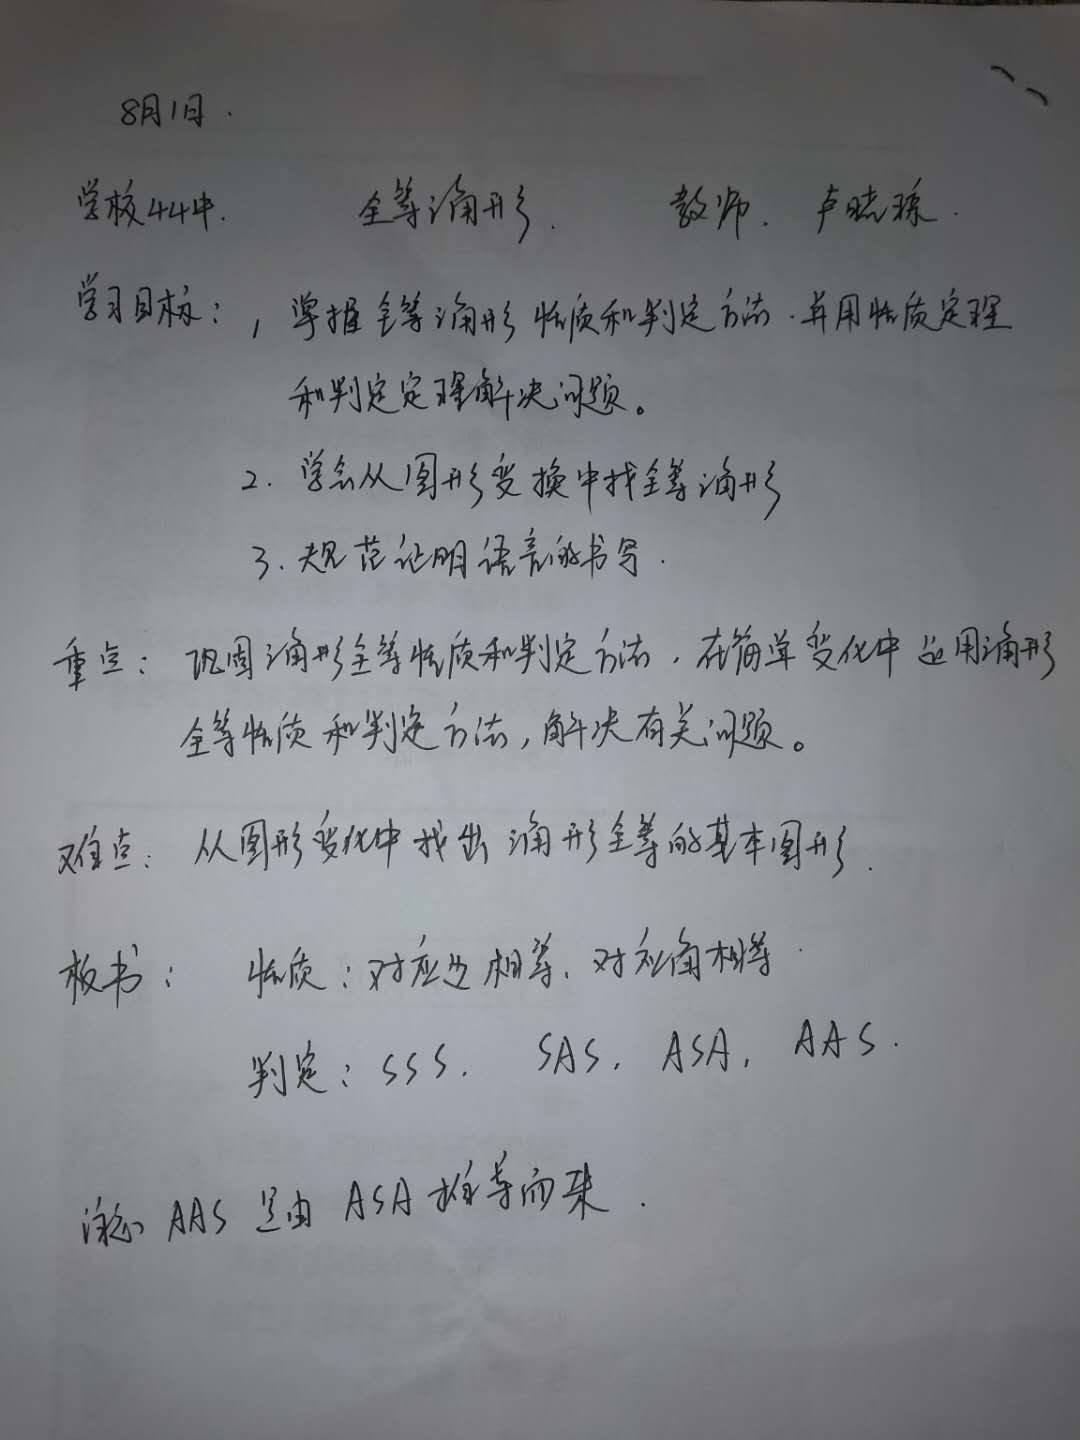 8月1日.
学校44中. 全等三角形. 教师. 卢晓琼.
学习目标: 1 掌握全等三角形性质和判定方法.并用性质定理
和判定定理解决问题。
2. 学会从图形变换中找全等三角形
3. 规范证明语言的书写.
重点: 巩固三角形全等性质和判定方法,在简单变化中运用三角形
全等性质和判定方法,解决有关问题。
难点: 从图形变化中找出三角形全等的基本图形.
板书: 性质:对应边相等、对应角相等
判定: SSS. SAS. ASA. AAS.
AAS是由ASA推导而来.